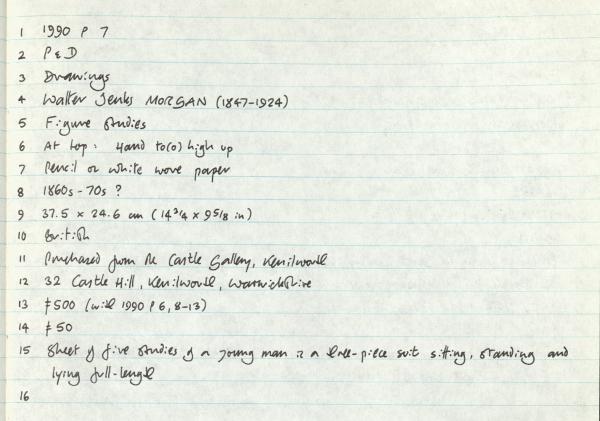 1 1990 P 7
2 P & D
3 Drawings
4 Walter Jenks MORGAN (1847-1924)
5 Figure studies
6 At top: Hand to(o) high up
7 Pencil on white wove paper
8 1860s - 70s ?
9 37.5 x 24.6 cm (14 3/4 x 9 5/8 in)
10 British
11 Purchased from the Castle Gallery, Kenilworth
12 32 Castle Hill, Kenilworth, Warwickshire
13 £500 (with 1990 P 6, 8-13)
14 £50
15 Sheet of five studies of a young man in a three-piece suit sitting, standing and
lying full-length
16